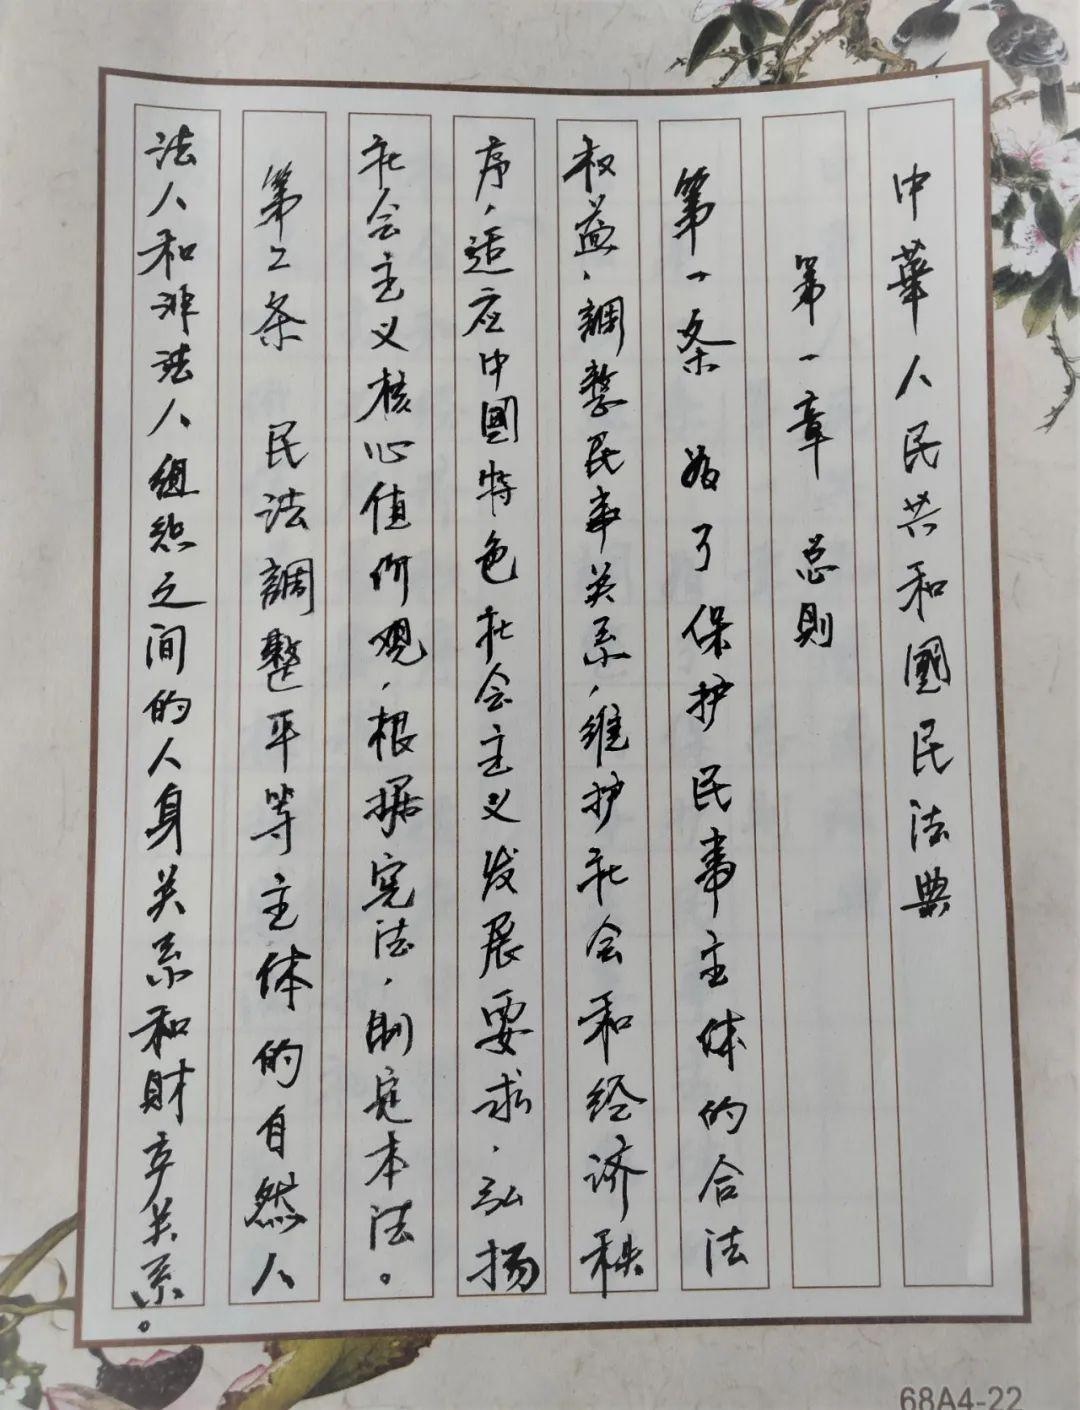 中華人民共和國民法典
第一章 总則
第一条 为了保护民事主体的合法
权益，調整民事关系，维护社会和经济秩
序，适应中國特色社会主义发展要求，弘扬
社会主义核心值价观，根据宪法，制定本法。
第二条 民法調整平等主体的自然人
法人和非法人组织之间的人身关系和財产关系。
68A4-22